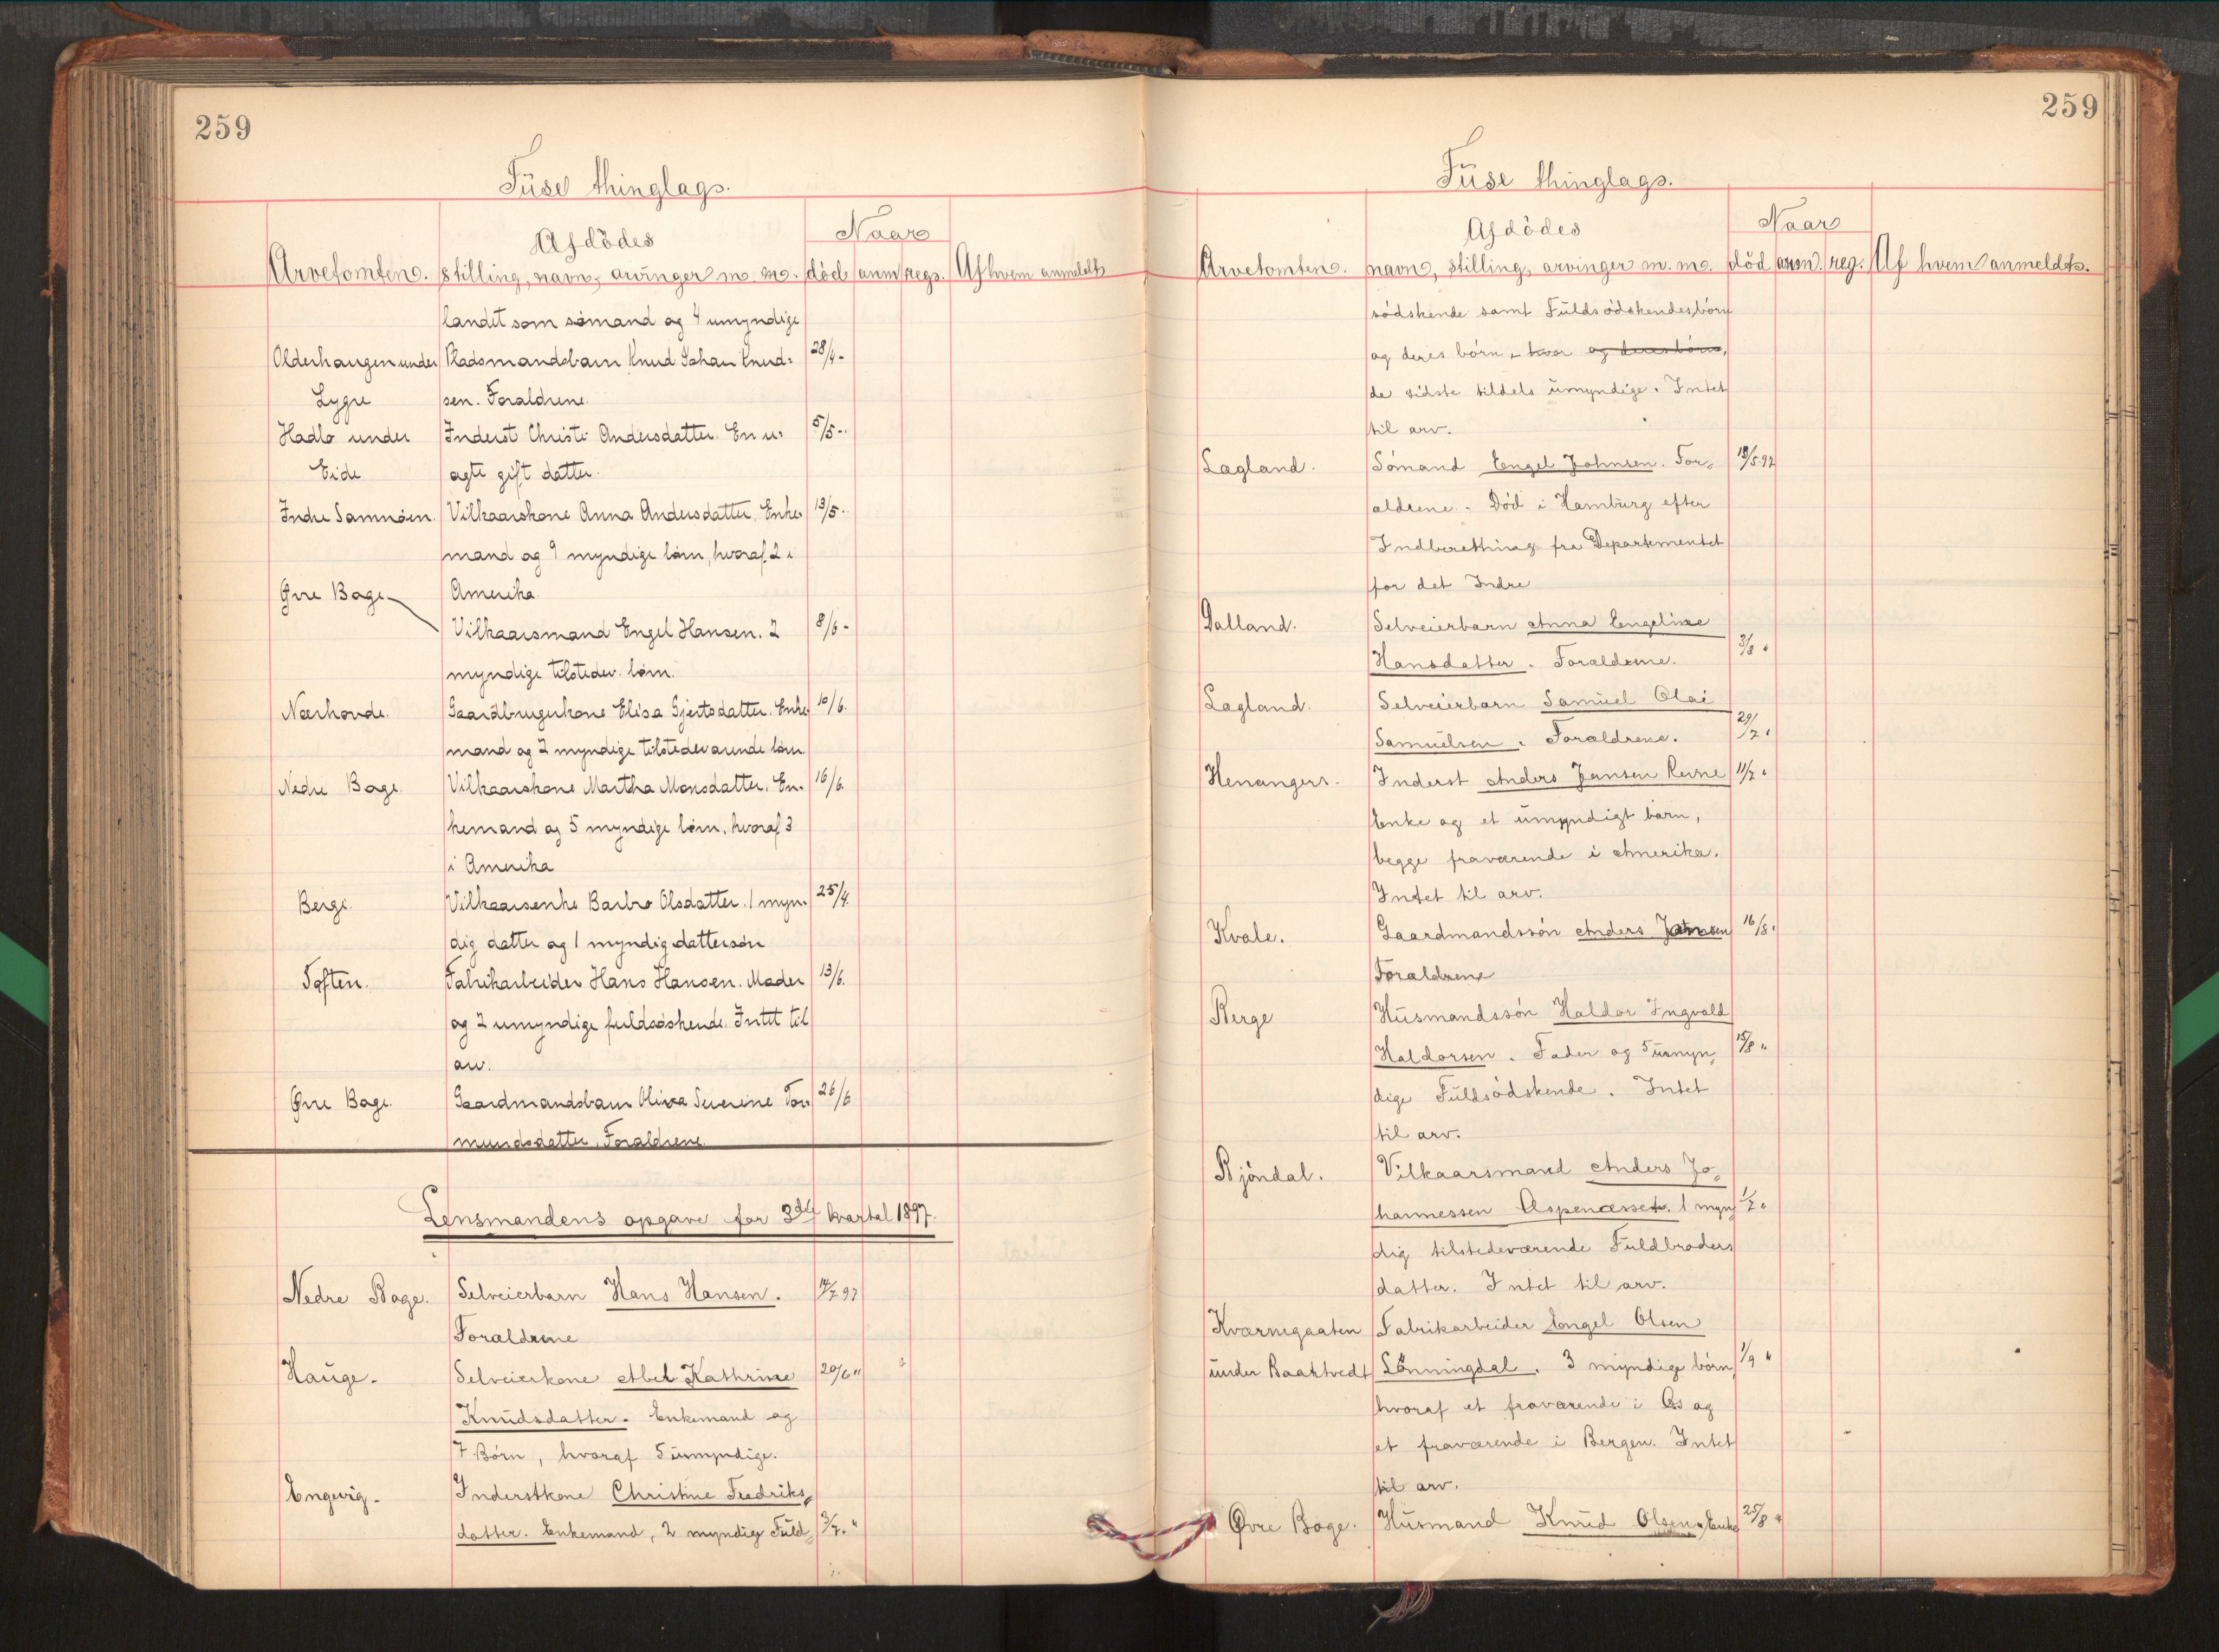 259
Füse thinglags.
Naar
Afdödes
Arvetomten. stilling, navn, arvinger m. m. död anm regs. Af hvem anmeldt
landet som sömand og 4 umyndige
Olderhaugen under Pladsmandsbarn Knud Johan Knud- 28/4 -
Lygre sen. Forældrene.
Hadlo under Inderst Christi Andersdatter. En u- 5/5 -
Eide ægte gift datter.
Indre Samnöen. Vilkaarskone Anna Andersdatter. Enke- 13/5 -
mand og 9 myndige börn, hvoraf 2 i
Øvre Bage Amerika.
Vilkaarsmand Engel Hansen. 2 8/6 -
myndige tilstedev. börn.
Nærhovde. Gaardbrugerkone Elisa Gjertsdatter. Enke- 10/6.
mand og 2 myndige tilstedeværende börn
Nedre Bage. Vilkaarskone Martha Monsdatter. En- 16/6.
kemand og 5 myndige börn, hvoraf 3
i Amerika
Berge. Vilkaarsenke Barbro Olsdatter. 1 myn- 25/4.
dig datter og 1 myndig dattersön
Toften. Fabrikarbeider Hans Hansen. Moder 13/6.
og 2 umyndige fuldsöskende. Intet til
arv.
Øvre Bage. Gaardmandsbarn Oliva Severine Tor- 26/6
mundsdatter. Forældrene.
Lensmandens opgave for 3die kvartal 1897.
Nedre Bage. Selveierbarn Hans Hansen. 14/7 97
Forældrene
Hauge. Selveierkone Abel Kathrine 20/6 "
Knudsdatter. Enkemand og
7 Börn, hvoraf 5 umyndige.
Engevig. Inderstkone Christine Fredriks-
datter. Enkemand, 2 myndige Fuld- 3/7. "
259
Füse thinglags.
Naar
Afdödes
Arvetomten. navn, stilling, arvinger m. m. död anm. reg. Af hvem anmeldt.
södskende samt Fuldsödskendesbörn
og deres börn, hvor og deres börn,
de sidste tildels umyndige. Intet
til arv.
Lagland. Sömand Engel Johnsen. For- 18/5 97
ældrene. Död i Hamburg efter
Indberetning fra Departementet
for det Indre
Dalland. Selveierbarn Anna Engeline
Hansdatter. Forældrene. 3/8 "
Lagland. Selveierbarn Samuel Olai
Samuelsen. Forældrene. 29/7 "
Henangers. Inderst Anders Jansen Revne 11/7 "
Enke og et umyndigt barn,
begge fraværende i Amerika.
Intet til arv.
Kvale. Gaardmandssön Anders Johnsen 16/8 "
Forældrene
Berge Husmandssön Haldor Ingvald
Haldorsen. Fader og 5 umyn- 15/8 "
dige Fuldsödskende. Intet
til arv.
Bjöndal. Vilkaarsmand Anders Jo-
hannessen Aspenæsset. 1 myn- 1/7 "
dig tilstedeværende Fuldbroders
datter. Intet til arv.
Kværnegaaten Fabrikarbeider Engel Olsen
under Baaktvedt Lönningdal. 3 myndige börn, 1/9 "
hvoraf et fraværende i Os og
et fraværende i Bergen. Intet
til arv.
Øvre Bage. Husmand Knud Olsen. Enke 25/8 "